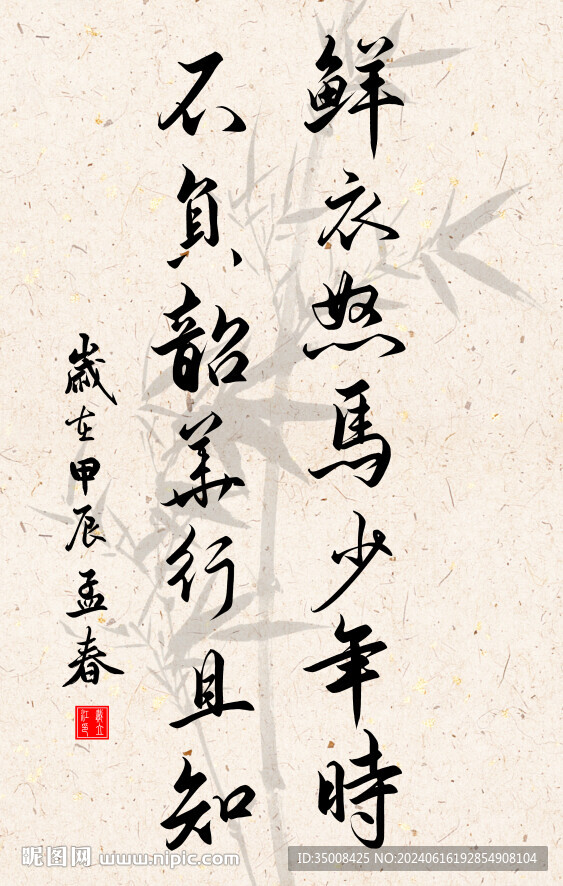 鮮衣怒馬少年時
不負韶華行且知
歲在甲辰孟春
昵图网 www.nipic.com
ID:35008425 NO:20240616192854908104